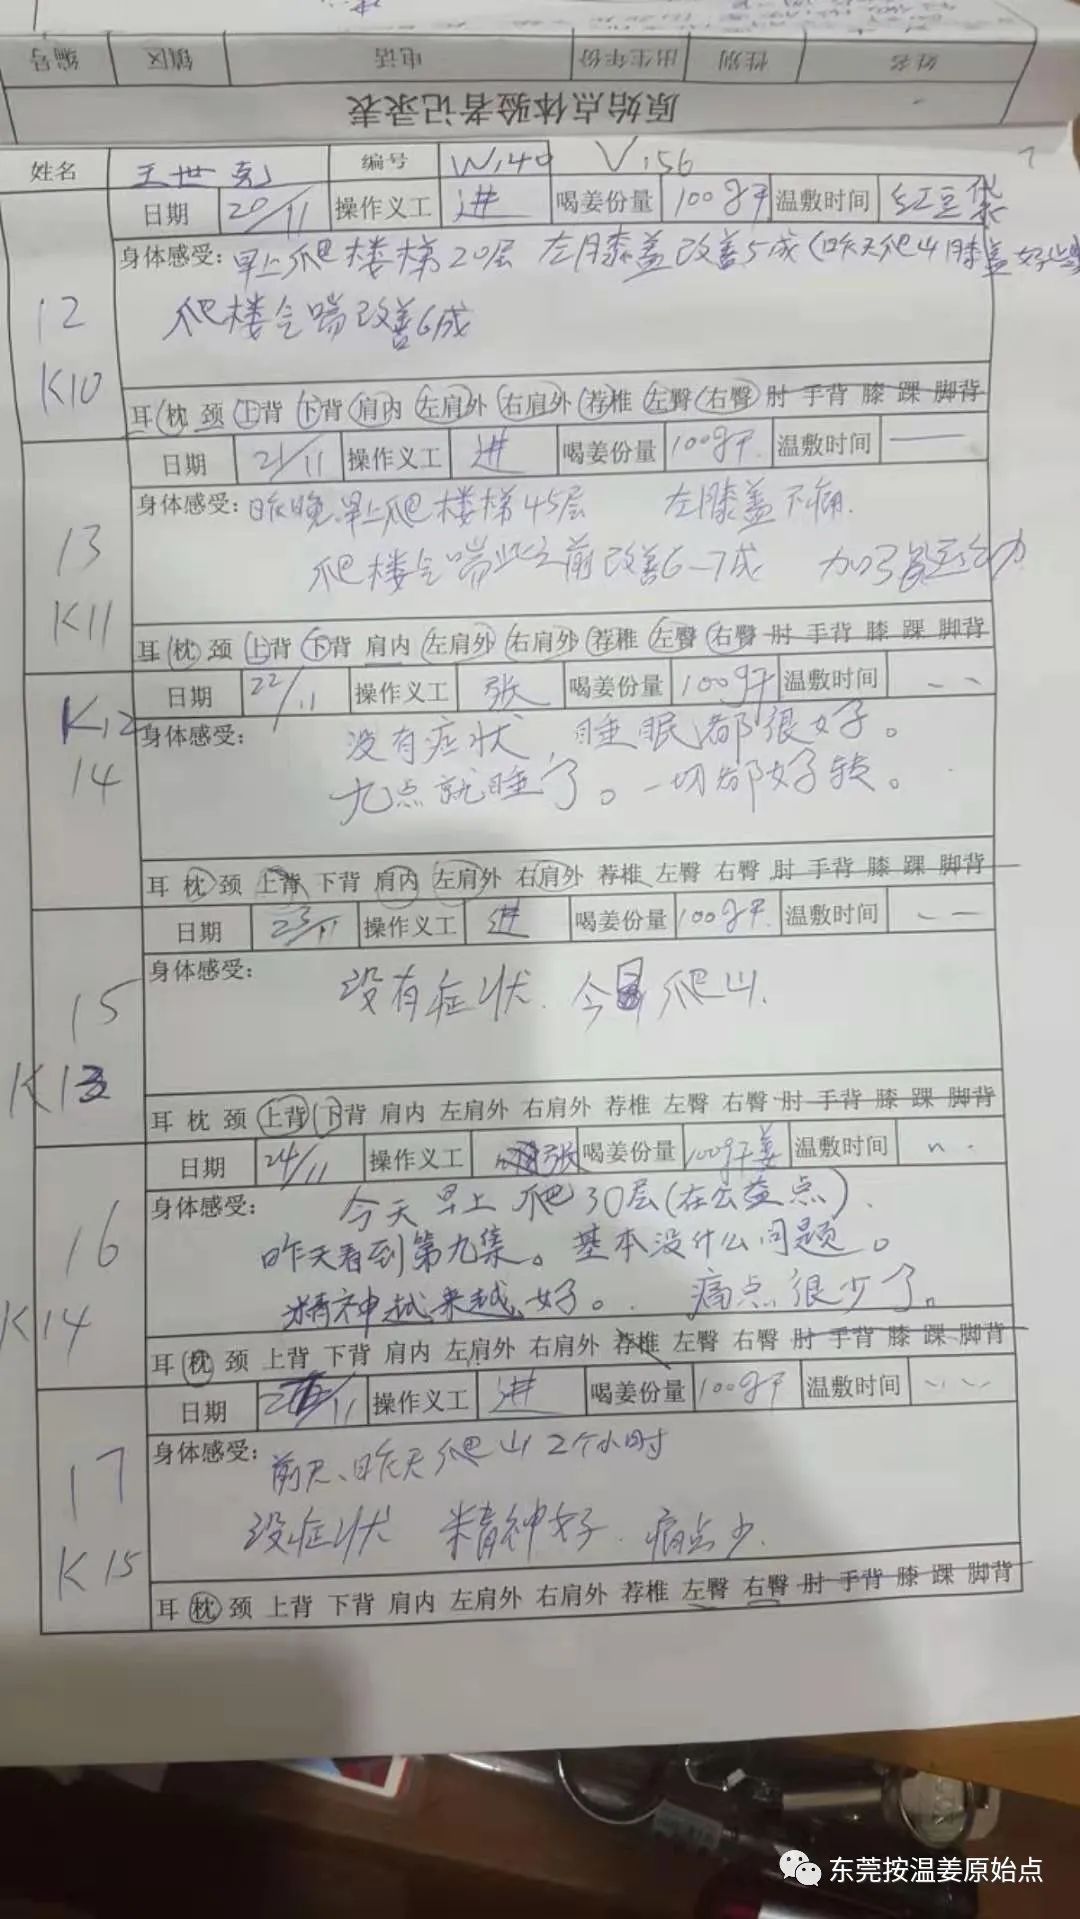 姓名 性别 出生年份 电话 镇区 编号
原始点体验者记录表
姓名 王世克 编号 W140 V156
日期 20/11 操作义工 进 喝姜份量 100g干 温敷时间 红豆袋
12
K10
身体感受: 早上爬楼梯20层 左膝盖改善5成(昨天爬山膝盖好些
爬楼气喘改善6成
耳 枕 颈 上背 下背 肩内 左肩外 右肩外 荐椎 左臀 右臀 肘 手背 膝 踝 脚背
日期 21/11 操作义工 进 喝姜份量 100g干. 温敷时间 —
13
K11
身体感受: 昨晚.早上爬楼梯45层 左膝盖不痛.
爬楼气喘比之前改善6-7成 加了运动
耳 枕 颈 上背 下背 肩内 左肩外 右肩外 荐椎 左臀 右臀 肘 手背 膝 踝 脚背
日期 22/11 操作义工 张 喝姜份量 100g干 温敷时间 、—
K12
14
身体感受: 没有症状,睡眠都很好。
九点就睡了。一切都好转。
耳 枕 颈 上背 下背 肩内 左肩外 右肩外 荐椎 左臀 右臀 肘 手背 膝 踝 脚背
日期 23/11 操作义工 进 喝姜份量 100g干. 温敷时间 、—
15
K13
身体感受: 没有症状. 今日爬山.
耳 枕 颈 上背 下背 肩内 左肩外 右肩外 荐椎 左臀 右臀 肘 手背 膝 踝 脚背
日期 24/11 操作义工 张 喝姜份量 100g干姜 温敷时间
16
K14
身体感受: 今天早上爬30层(在公益点).
昨天看到第九集。基本没什么问题。
精神越来越好。. 痛点很少了。
耳 枕 颈 上背 下背 肩内 左肩外 右肩外 荐椎 左臀 右臀 肘 手背 膝 踝 脚背
日期 25/11 操作义工 进 喝姜份量 100g干 温敷时间
17
K15
身体感受: 前天、昨天爬山2个小时
没症状 精神好. 痛点少.
耳 枕 颈 上背 下背 肩内 左肩外 右肩外 荐椎 左臀 右臀 肘 手背 膝 踝 脚背
东莞按温姜原始点